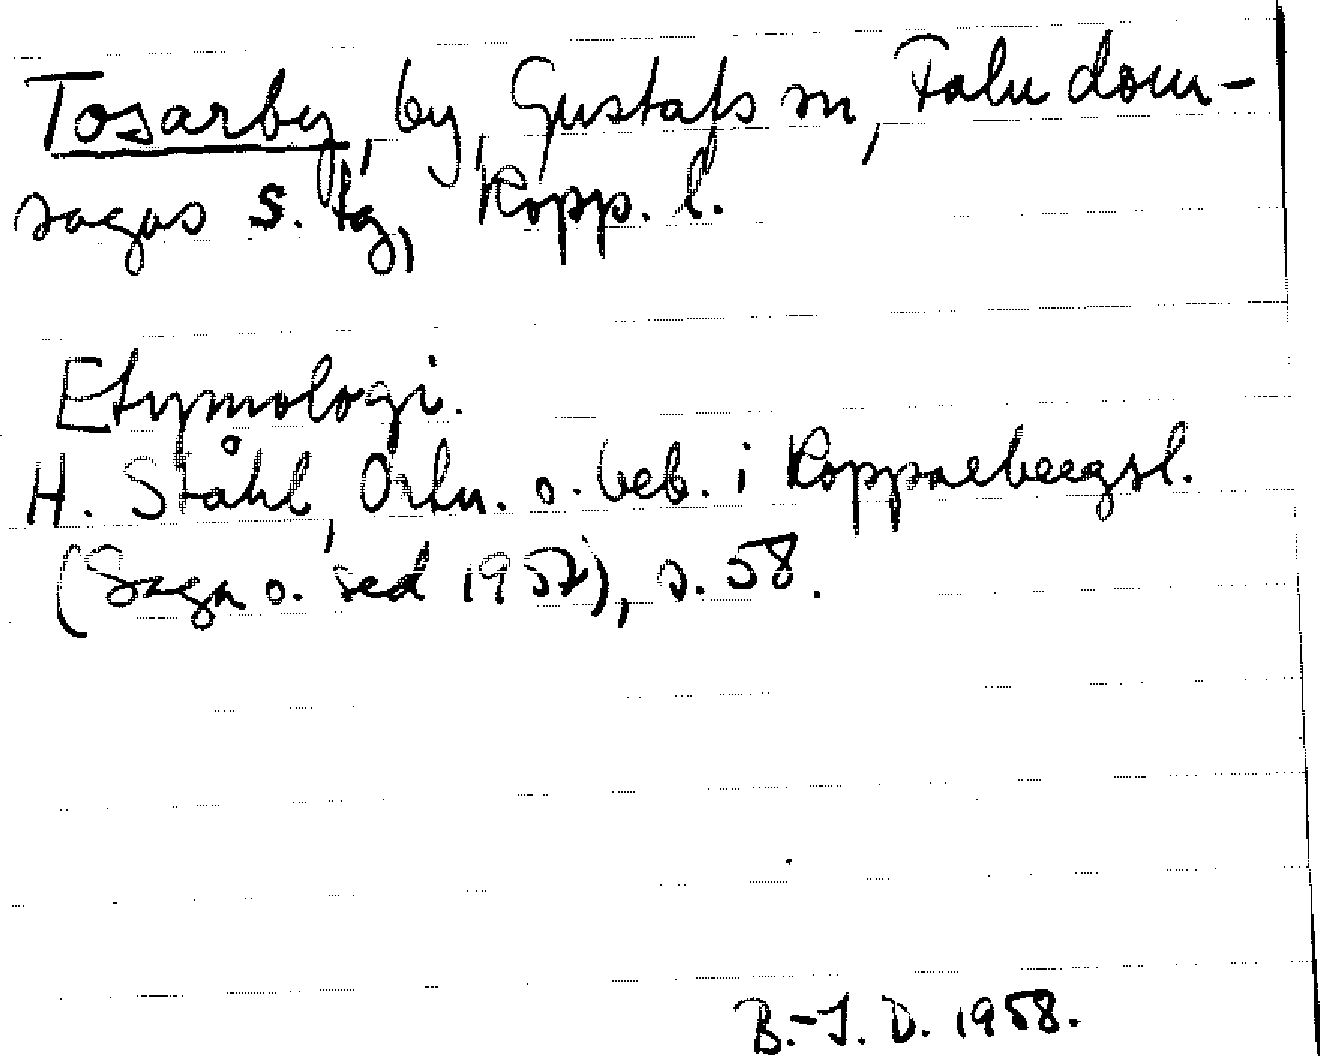 Tosarby, by, Gustafs sn, Falu dom-
sagas s. tg, Kopp. l.
Etymologi.
H. Ståhl, Ortn. o. beb. i Kopparbergsl.
(Saga o. sed 1957), s. 58.
B.-J. D. 1958.